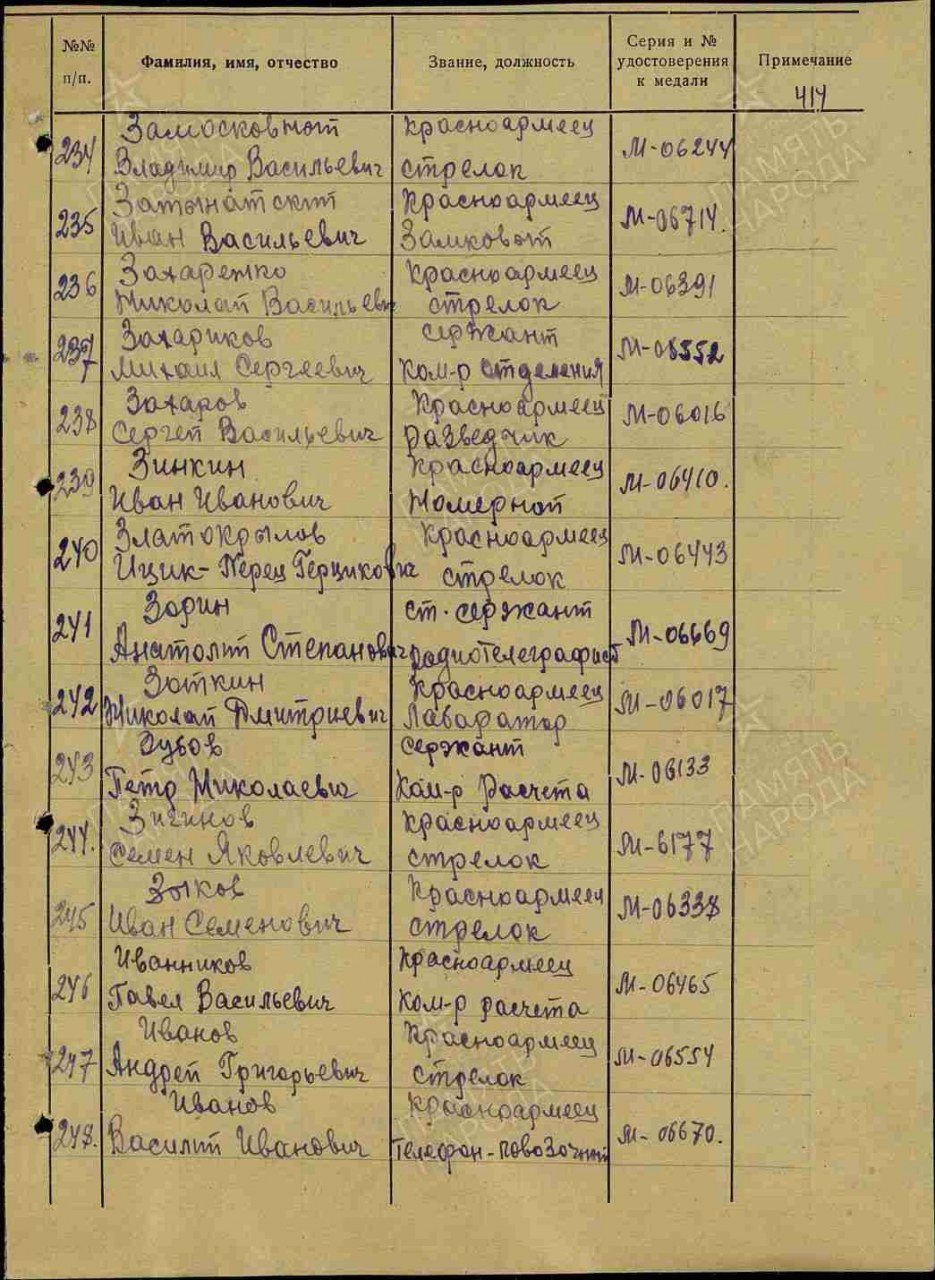 №№ п/п. Фамилия, имя, отчество Звание, должность Серия и № удостоверения к медали Примечание
414
234 Замосковной Красноармеец М-06244
Владимир Васильевич стрелок
235 Красноармеец М-06714.
Иван Васильевич Замковой
236 Захаренко Красноармеец М-06391
Николай Васильевич стрелок
237 Захариков сержант М-06552
Михаил Сергеевич ком-р отделения
238 Захаров Красноармеец М-06016
Сергей Васильевич разведчик
239 Зинкин Красноармеец М-06410.
Иван Иванович Номерной
240 Златокрылов Красноармеец М-06443
Ицик-Перец Герцикович стрелок
241 Зорин ст. сержант М-06669
Анатолий Степанович радиотелеграфист
242 Зоткин Красноармеец М-06017
Николай Дмитриевич Лаборатор
243 Зубов сержант М-06133
Петр Николаевич Ком-р расчета
244. Зигинов Красноармеец М-6177
Семен Яковлевич стрелок
245 Зыков Красноармеец М-06338
Иван Семенович стрелок
246 Иванников Красноармеец М-06465
Павел Васильевич ком-р расчета
247 Иванов Красноармеец М-06554
Андрей Григорьевич стрелок
248. Иванов Красноармеец М-06670.
Василий Иванович Телефон-повозочный
ПАМЯТЬ НАРОДА
ПАМЯТЬ НАРОДА